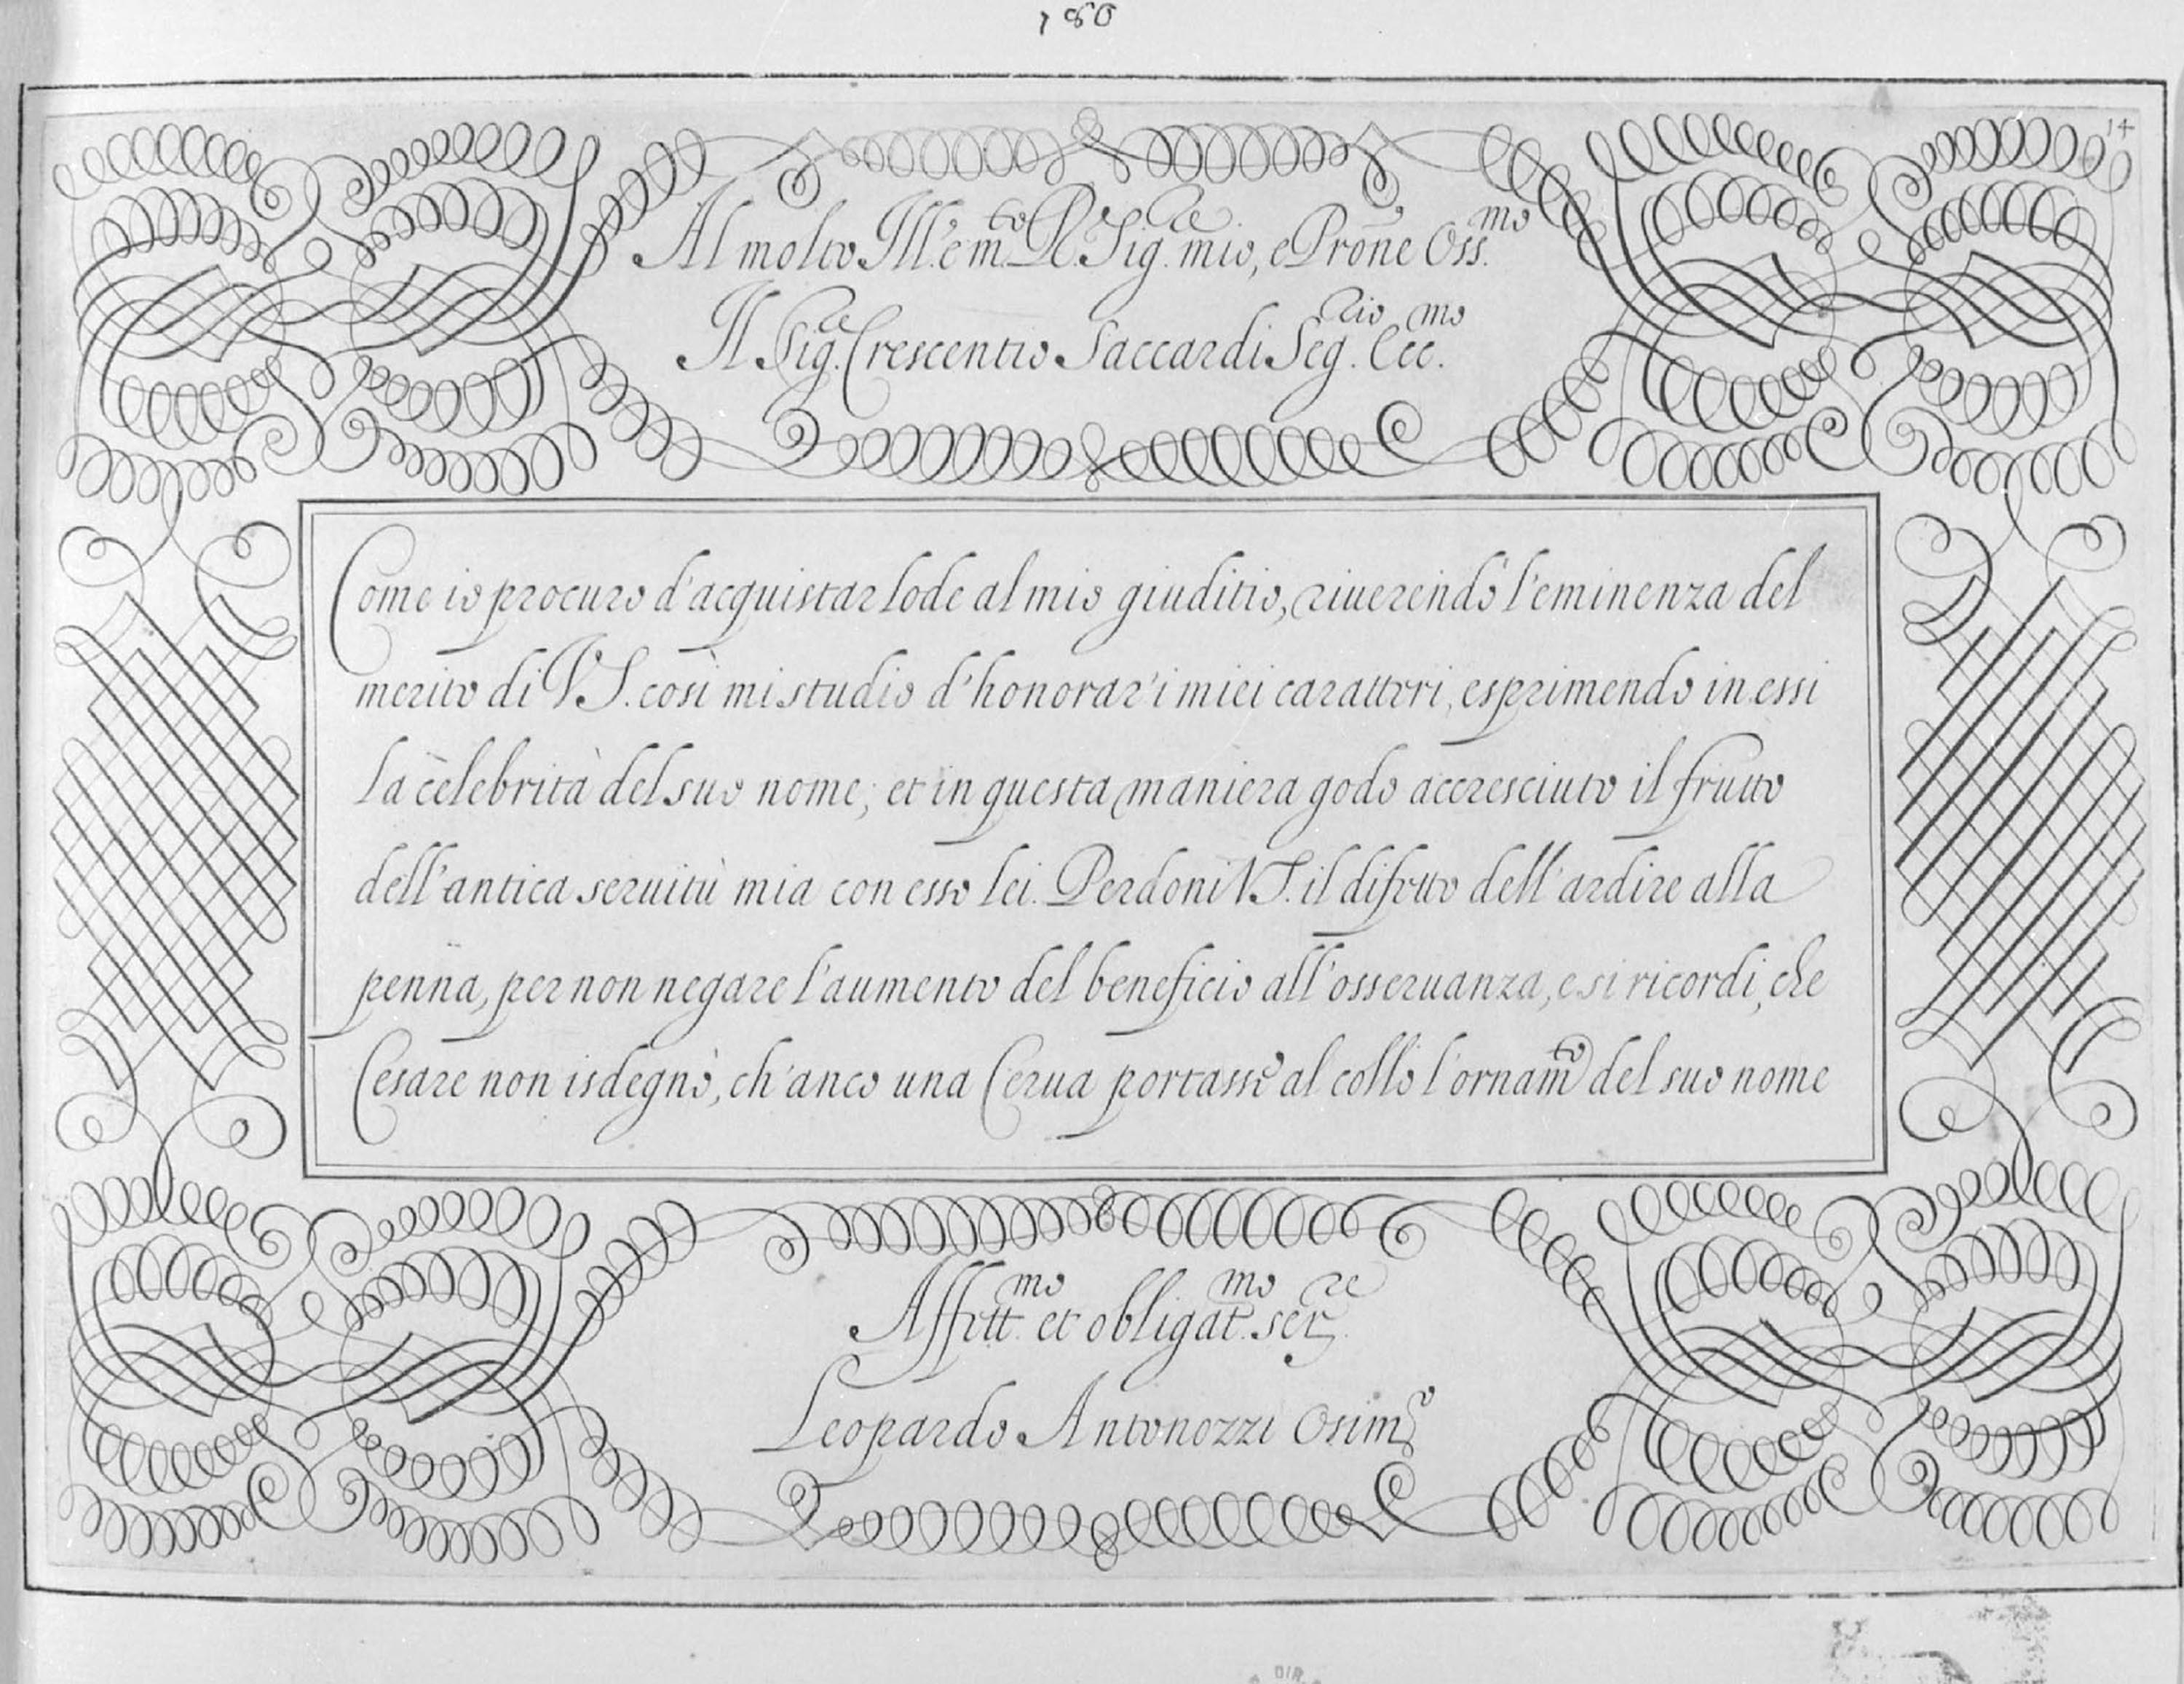 180
14
Al molto Ill.e e m.to R. Sig.re mio, e Prone Oss.mo
Il Sig.re Crescentio Saccardi Seg.rio Ecc.mo
Come io procuro d'acquistar lode al mio giuditio, riuerendo l'eminenza del
merito di V.S. così mi studio d'honorar'i miei caratteri, esprimendo in essi
la celebrità del suo nome; et in questa maniera godo accresciuto il frutto
dell'antica seruitù mia con esso lei. Perdoni V.S. il difetto dell'ardire alla
penna, per non negare l'aumento del beneficio all'osseruanza, e si ricordi, che
Cesare non isdegnò, ch'anco una Cerua portasse al collo l'ornam.to del suo nome
Affett.mo et obligat.mo ser.re
Leopardo Antonozzi Osimo
DIR